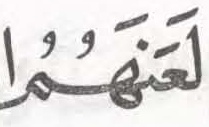 لَعَنَهُمُ ا